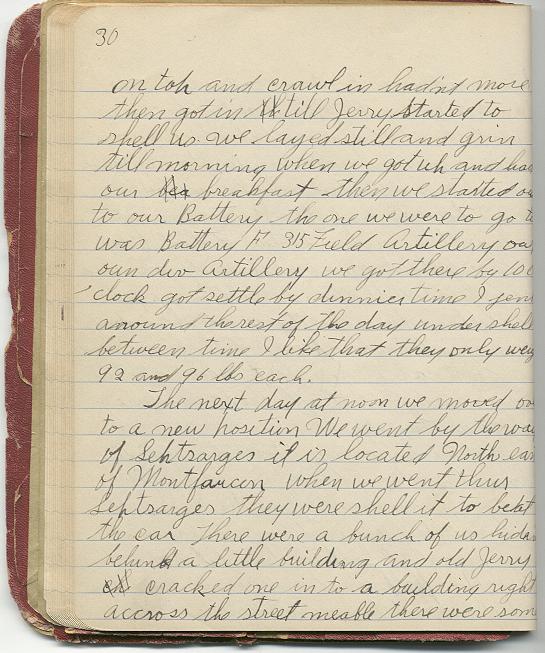 30
on toh and crawl in hadnt more
then got in till Jerry started to
shell us. we layed still and grin
till morning when we got uh and
our breakfast then we started
to our Battery the one we were to go
was Battery F. 315 Field Artillery
our div Artillery we got there by 10
clock got settle by dinnier time I
around the rest of the day under
between time I like that they only
92 and 96 lbs each.
The next day at noon we moved
to a new position We went by the way
of Sehtsarges it is located North
of Montfaucon when we went thru
Sehtsarges they were shell it to beat
the car There were a bunch of us
behind a little building and old Jerry
cracked one in to a building right
accross the street meable there were